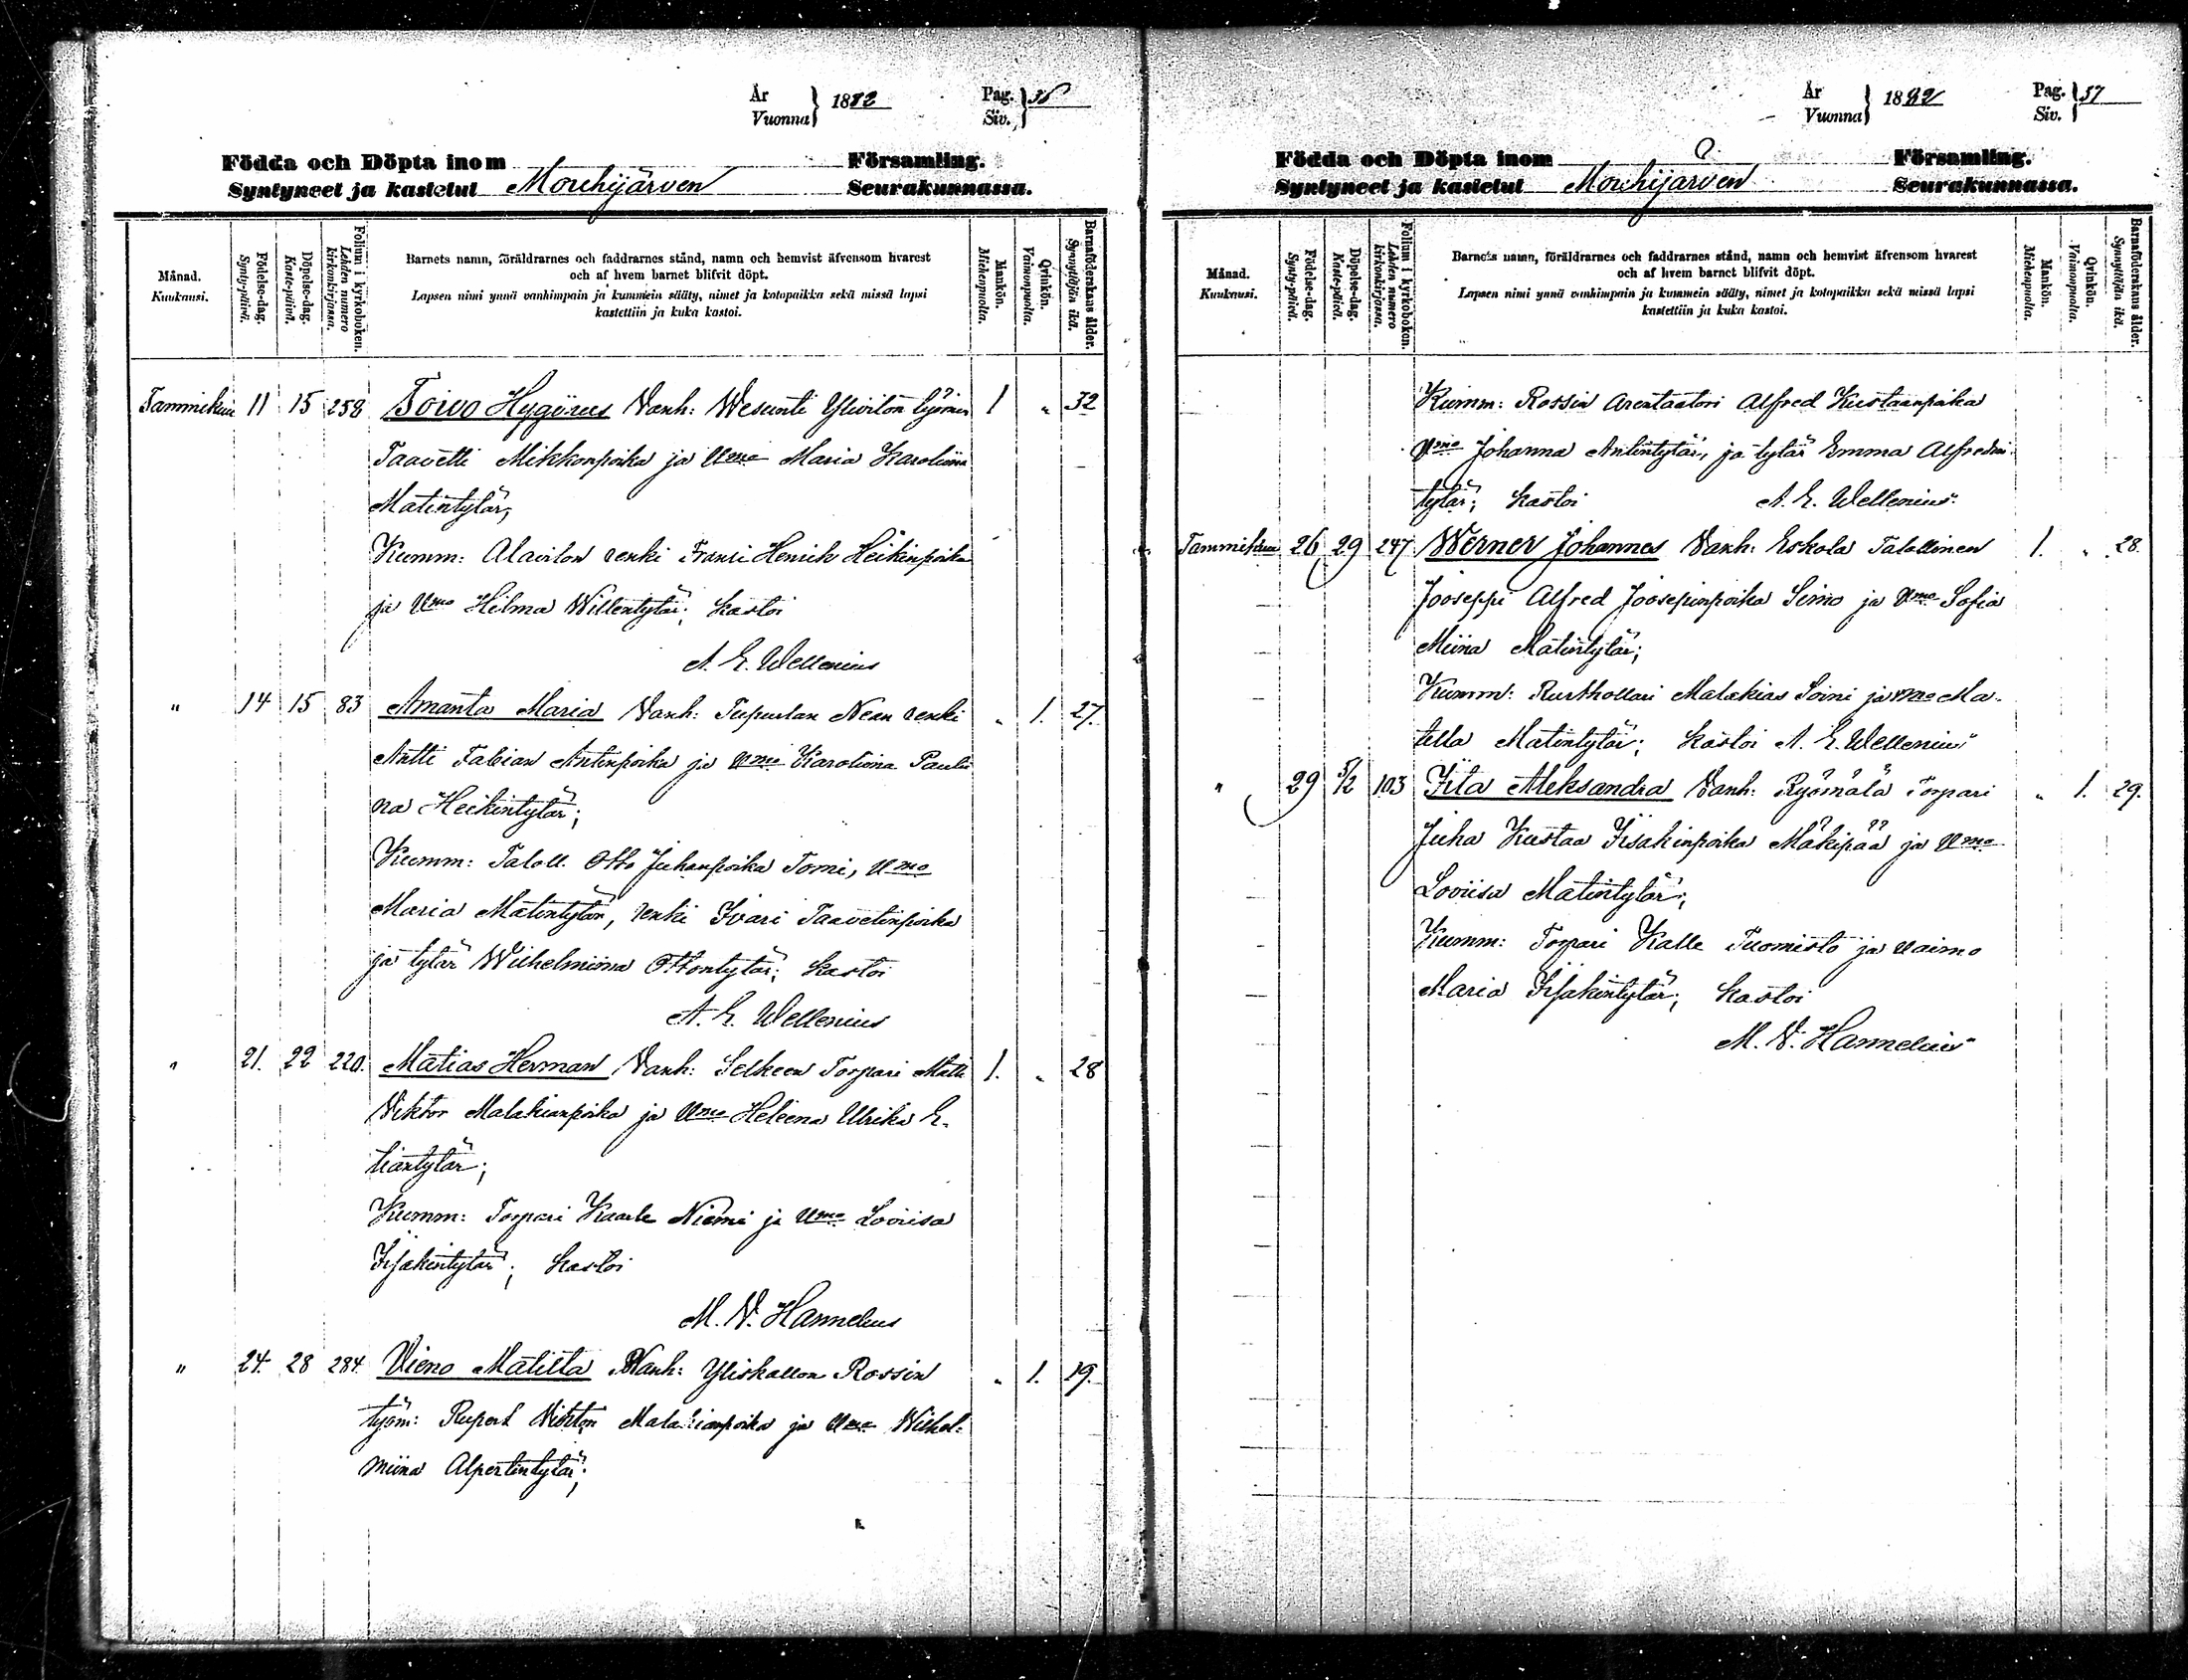 År
Vuonna } 1882
Pag.
Siv.
Födda och Döpta inom
Församling.
Syntyneet ja kastetut Mouhijärven Seurakunnassa.
Månad.
Kuukausi.
Födelse-dag.
Synty-päivä.
Döpelse-dag.
Kaste-päivä.
Folium i kyrkoboken.
Lehden numero kirkonkirjassa.
Barnets namn, föräldrarnes och faddrarnes stånd, namn och hemvist äfvensom hvarest
och af hvem barnet blifvit döpt.
Lapsen nimi ynnä vanhimpain ja kummein sääty, nimet ja kotopaikka sekä missä lapsi
kastettiin ja kuka kastoi.
Mankön.
Miehenpuolta.
Qvinkön.
Vaimonpuolta.
Barnaföderskans ålder.
Synnyttäjän ikä.
Tammikuu 11 15 258 Toivo Hyginus Vanh: Wesunti Ylivilon työmies 1 „ 32
Taavetti Mikkonpoika ja Vmo Maria Karoliina
Matintytär;
Kumm: Alavilon renki Fransi Henrik Heikinpoika
ja Vmo Hilma Willentytär; kastoi
A. E. Wellenius
„ 14 15 83 Amanta Maria Vanh: Nean renki „ 1. 27.
Antti Fabian Antinpoika ja Vmo Karoliina Pauli
na Heikintytär;
Kumm: Taloll. Otto Juhanpoika Tomi, Vmo
Maria Matintytär, renki Ivari Taavetinpoika
ja tytär Wilhelmiina Ottontytär; kastoi
A. E. Wellenius
„ 21. 22 220. Matias Herman Vanh: Selkeen Torpari Matti 1. „ 28
Viktor Malakianpoika ja Vmo Heleena Ulrika E-
liantytär;
Kumm: Torpari Kaarle Niemi ja Vmo Loviisa
Iisakintytär; kastoi
M. V. Hannelius
„ 24. 28 284. Vieno Matilta Vanh: Yliskallon Rossin „ 1. 19.
työm: Rupert Viktor Malakianpoika ja Vmo Wilhel-
miina Alpertintytär;
År
Vuonna } 1882
Pag.
Siv. } 57
Födda och Döpta inom
Församling.
Syntyneet ja kastetut Mouhijärven Seurakunnassa.
Månad.
Kuukausi.
Födelse-dag.
Synty-päivä.
Döpelse-dag.
Kaste-päivä.
Folium i kyrkoboken.
Lehden numero kirkonkirjassa.
Barnets namn, föräldrarnes och faddrarnes stånd, namn och hemvist äfvensom hvarest
och af hvem barnet blifvit döpt.
Lapsen nimi ynnä vanhimpain ja kummein sääty, nimet ja kotopaikka sekä missä lapsi
kastettiin ja kuka kastoi.
Mankön.
Miehenpuolta.
Qvinkön.
Vaimonpuolta.
Barnaföderskans ålder.
Synnyttäjän ikä.
Kumm: Rossin Arentaatori Alfred Kustaanpoika
Vmo Johanna Antintytär, ja tytär Emma Alfredin-
tytär; kastoi A. E. Wellenius
Tammikuu 26 29 247 Werner Johannes Vanh: Eskola Talollinen 1. „ 28.
Jooseppi Alfred Joosepinpoika Simo ja Vmo Sofia
Miina Matintytär;
Kumm: Rusthollari Malakias Soini ja Vmo Ma-
tilta Matintytär; kastoi A. E. Wellenius
„ 29 5/2 103 Iita Aleksandra Vanh: Ryömälä Torpari „ 1. 29.
Juha Kustaa Iisakinpoika Mäkipää ja Vmo
Loviisa Matintytär;
Kumm: Torpari Kalle Tuomisto ja vaimo
Maria Iisakintytär; kastoi
M. V. Hannelius